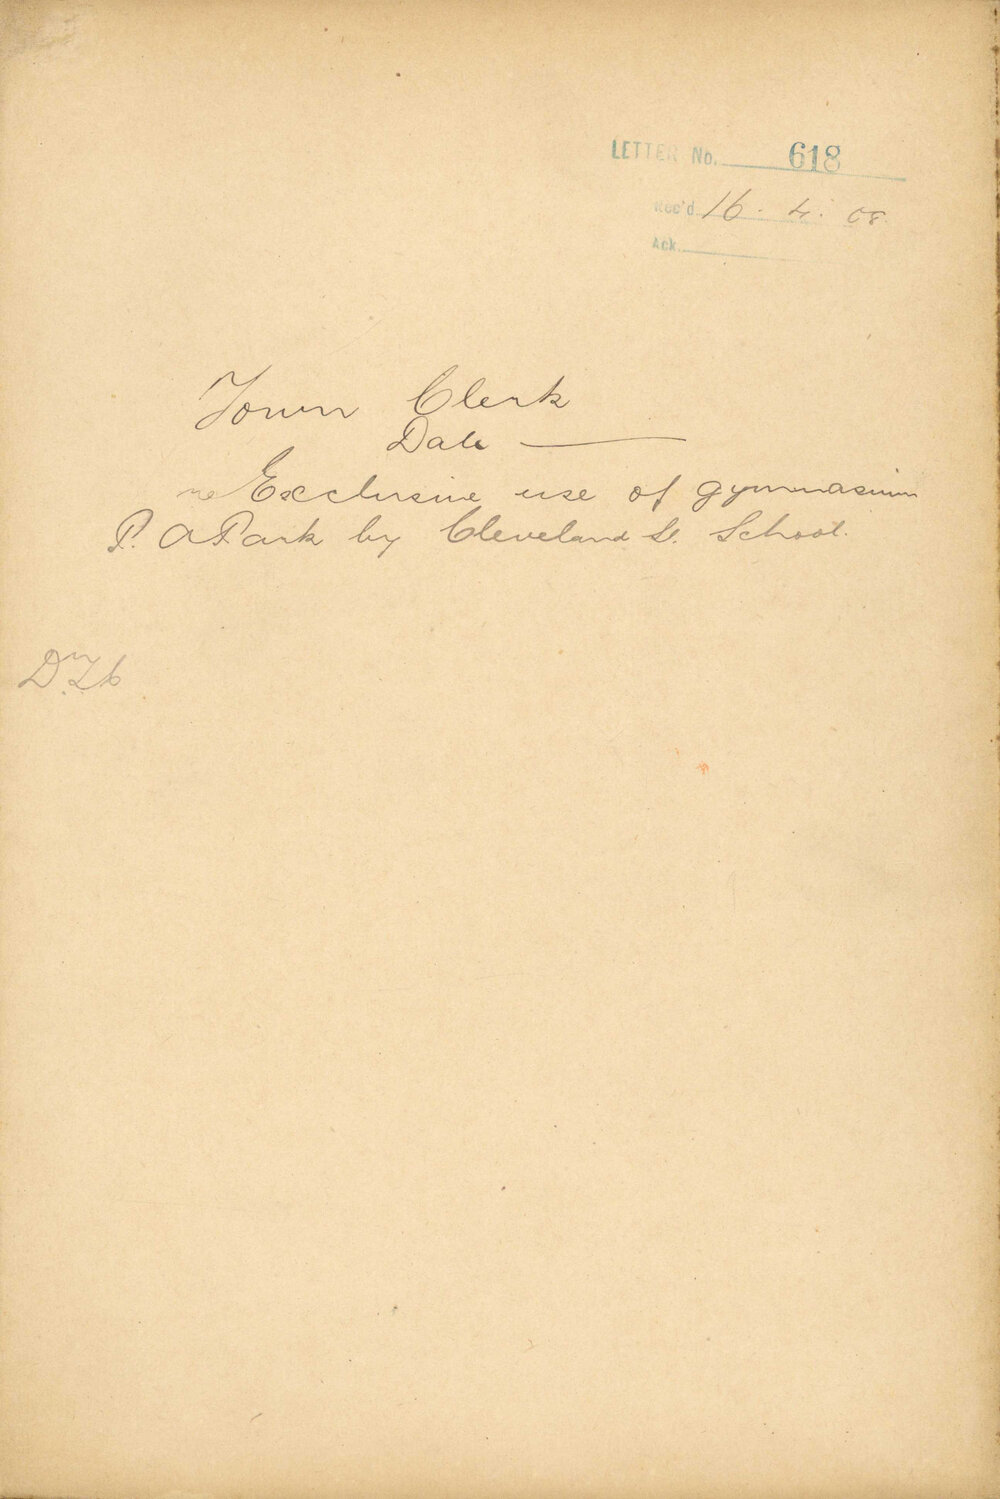 LETTER No. 618
Rec'd 16. 4. 08.
Ack.
Town Clerk
Date
re Exclusive use of gymnasium
P. A Park by Cleveland St. School.